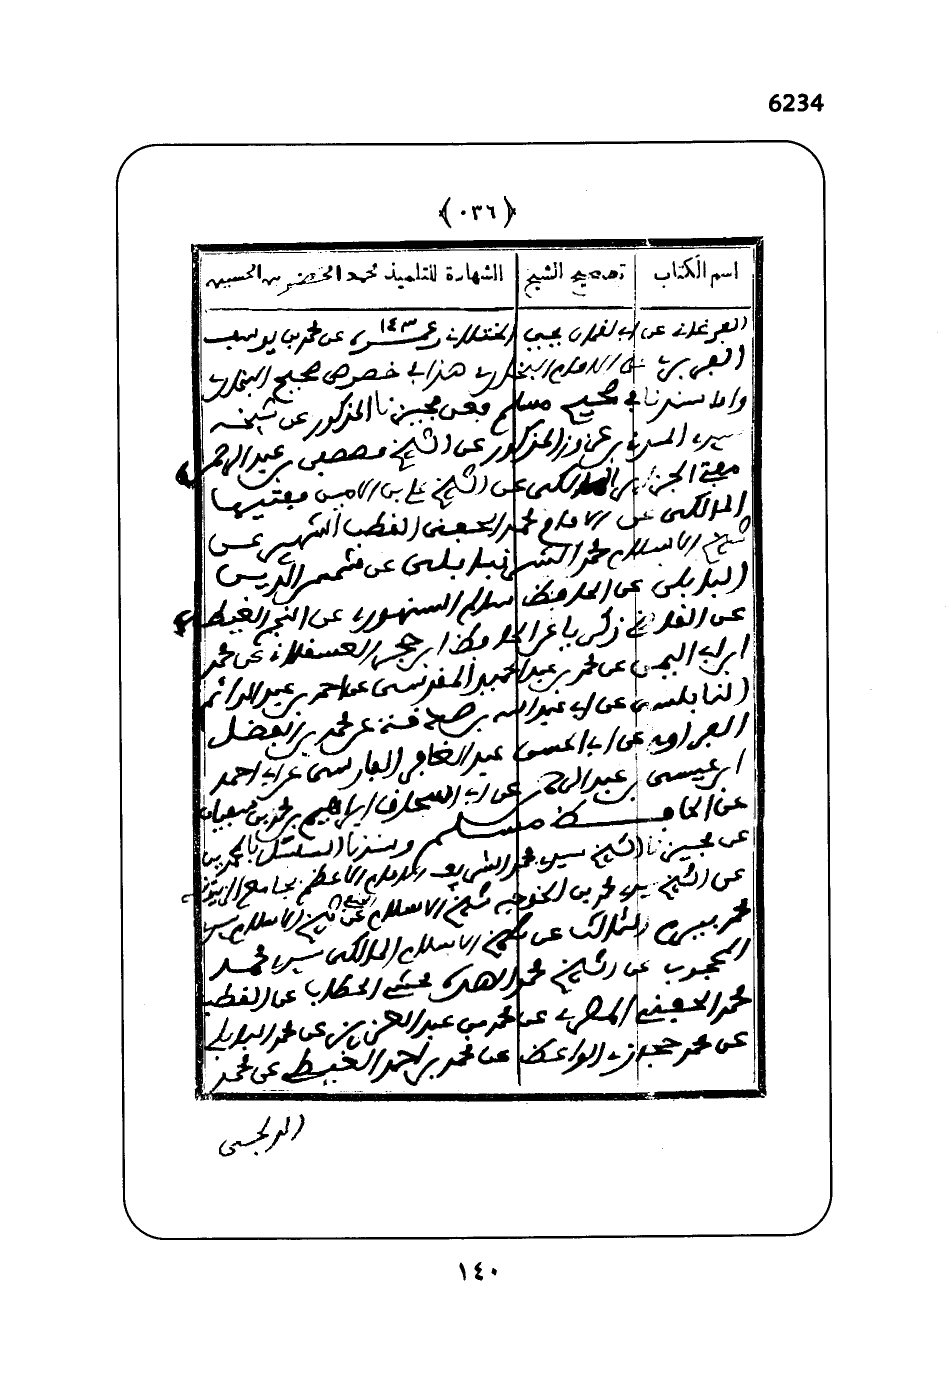 6234
﴿٠٣٦﴾
اسم الكتاب تصحيح الشيخ الشهادة للتلميذ محمد الخضر بن الحسين
الفرغاني عن ابي لقمان يحيى الختلاني وعمره ١٤٣ عن محمد بن يوسف
الفربري عن الامام البخاري هذا في خصوص صحيح البخاري
واما سندنا في صحيح مسلم فعن مجيزنا المذكور عن شيخه
المدني بن عزوز المذكور عن الشيخ مصطفى بن عبد الرحمن
مفتي الجزائر المالكي عن الشيخ علي بن الامين مفتيها
المالكي عن الامام محمد الحفني القطب الشهير عن
شيخ الاسلام محمد الشرنبابلي عن شمس الدين
البابلي عن الحافظ سالم السنهوري عن النجم الغيطي
عن القاضي زكرياء عن الحافظ ابن حجر العسقلاني عن محمد
ابي اليمن عن محمد بن عبد الحميد المقدسي عن احمد بن عبد الدائم
النابلسي عن ابي عبد الله بن صدقة عن محمد بن الفضل
الفراوي عن ابي الحسين عبد الغافر الفارسي عن ابي احمد
ابن عيسى بن عبد الرحمن عن ابي اسحاق ابراهيم بن محمد بن سفيان
عن الحافظ مسلم وسندنا المسلسل بالمحمدين
عن مجيزنا الشيخ سيدي محمد الشريف الامام الاعظم بجامع الزيتونة
عن الشيخ محمد بن الخوجه شيخ الاسلام عن شيخ الاسلام
محمد بيرم الثالث عن شيخ الاسلام المالكي سيدي محمد
المحجوب عن الشيخ محمد الهدة محشي الحطاب عن القطب
محمد الحفني المصري عن محمد بن عبد العزيز عن محمد البابلي
عن محمد حجازي الواعظ عن محمد بن احمد الغيطي عن محمد
الدلجي
١٤٠